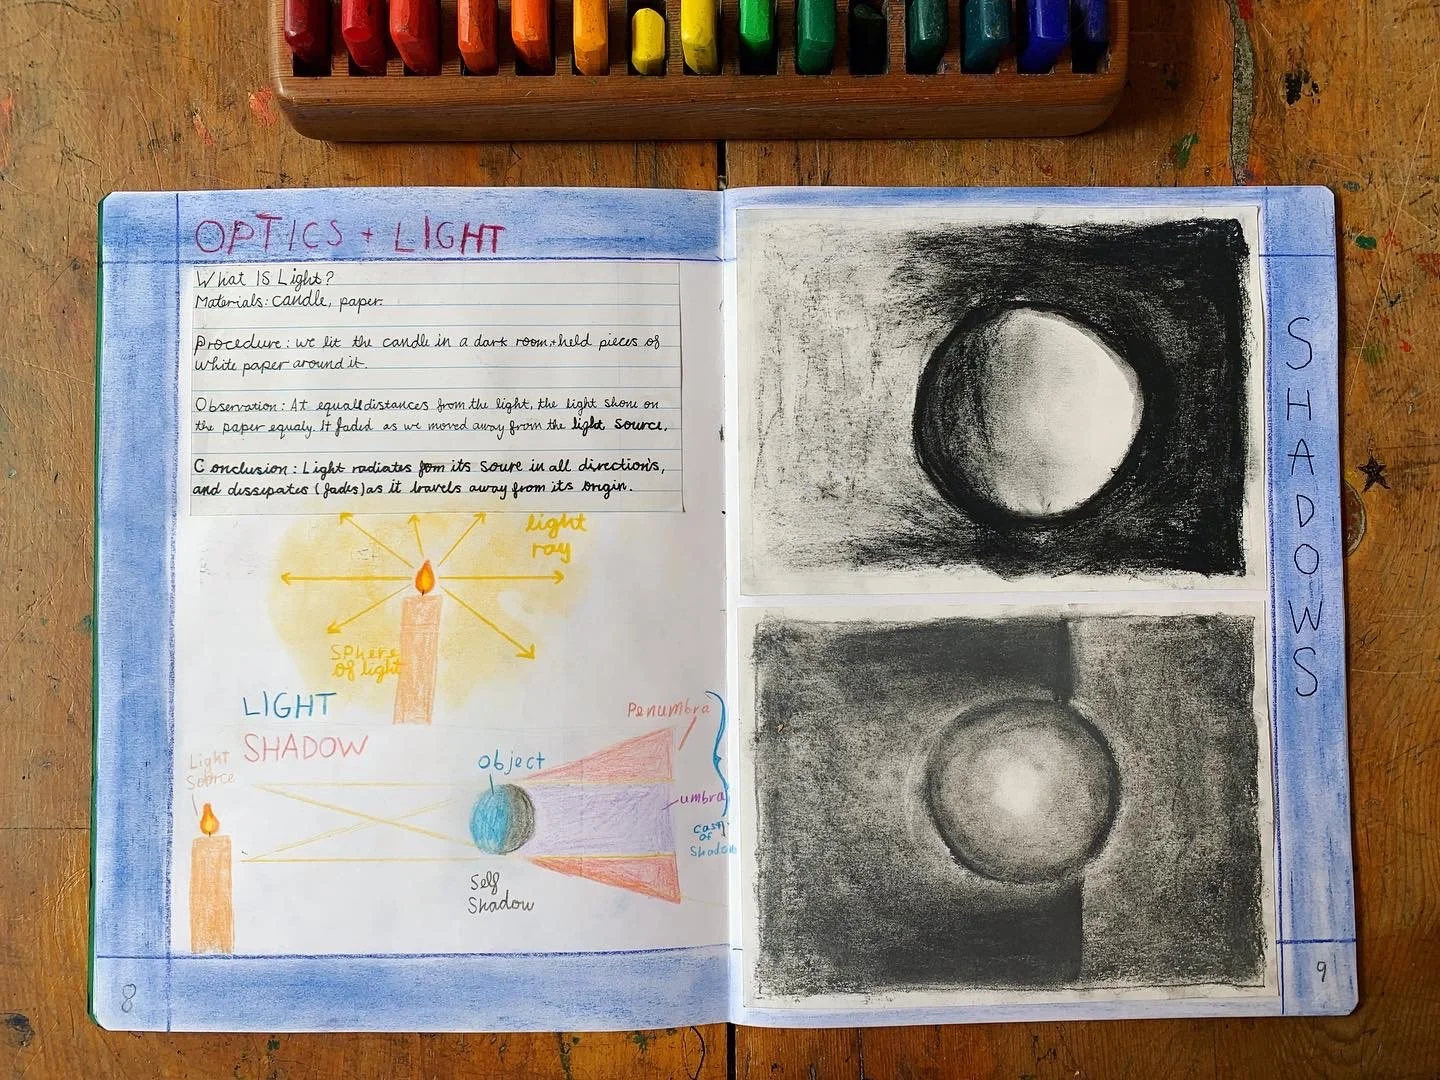 OPTICS + LIGHT
What IS Light?
Materials: candle, paper.
Procedure: we lit the candle in a dark room + held pieces of
white paper around it.
Observation: At equall distances from the light, the light shone on
the paper equaly. It faded as we moved away from the light source.
Conclusion: Light radiates fom its soure in all direction's,
and dissepates (fades) as it travels away from its Origin.
light
ray
Sphere
of light
LIGHT
SHADOW
Light
Source
Object
Self
Shadow
Penumbra
umbra
Cast
of
Shadow
8
SHADOWS
9